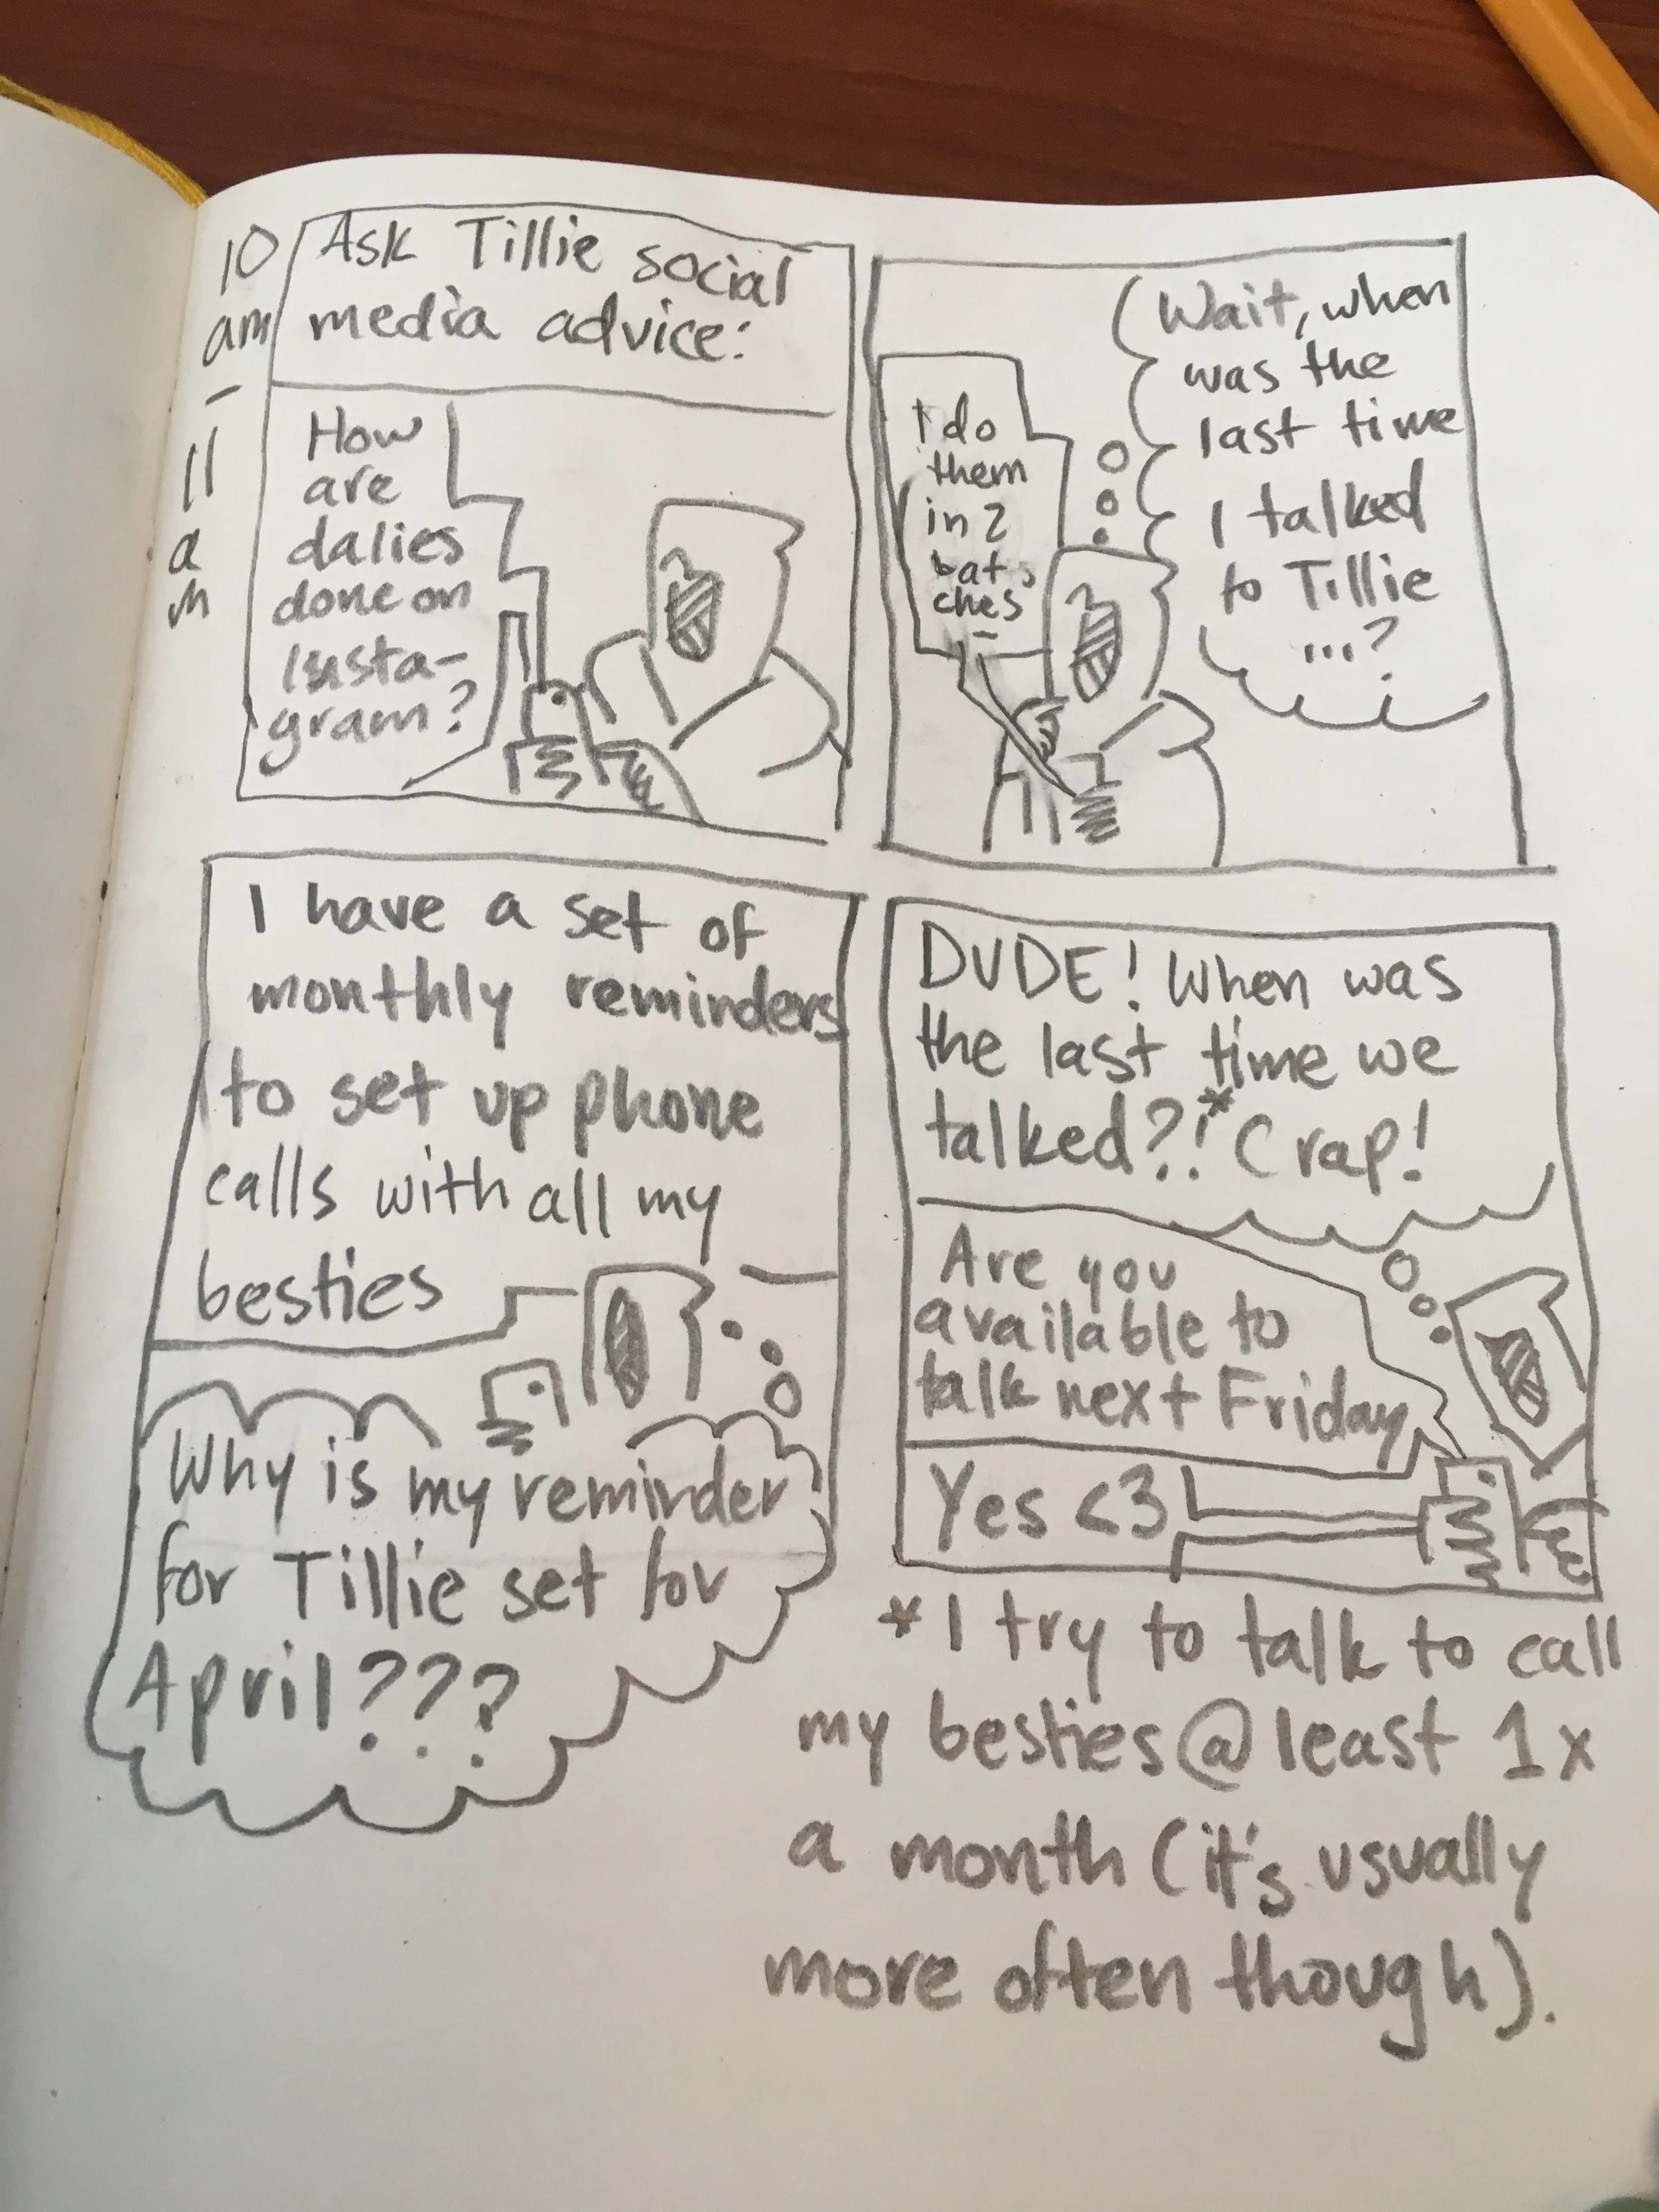 10
am
–
11
a
m
Ask Tillie social
media advice:
How
are
dalies
done on
Insta-
gram?
I do
them
in 2
bat
ches
Wait, when
was the
last time
I talked
to Tillie
...?
I have a set of
monthly reminders
to set up phone
calls with all my
besties
Why is my reminder
for Tillie set for
April???
DUDE! When was
the last time we
talked?!* Crap!
Are you
available to
talk next Friday
Yes <3
*I try to talk to call
my besties @ least 1x
a month (it's usually
more often though).